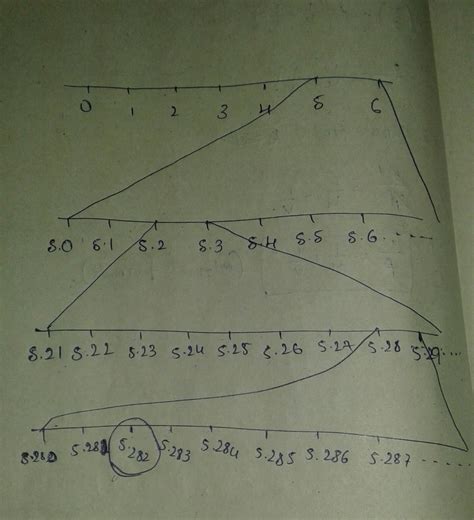 0 1 2 3 4 5 6
5.0 5.1 5.2 5.3 5.4 5.5 5.6 ......
5.21 5.22 5.23 5.24 5.25 5.26 5.27 5.28 5.29 ....
5.280 5.281 5.282 5.283 5.284 5.285 5.286 5.287 ......